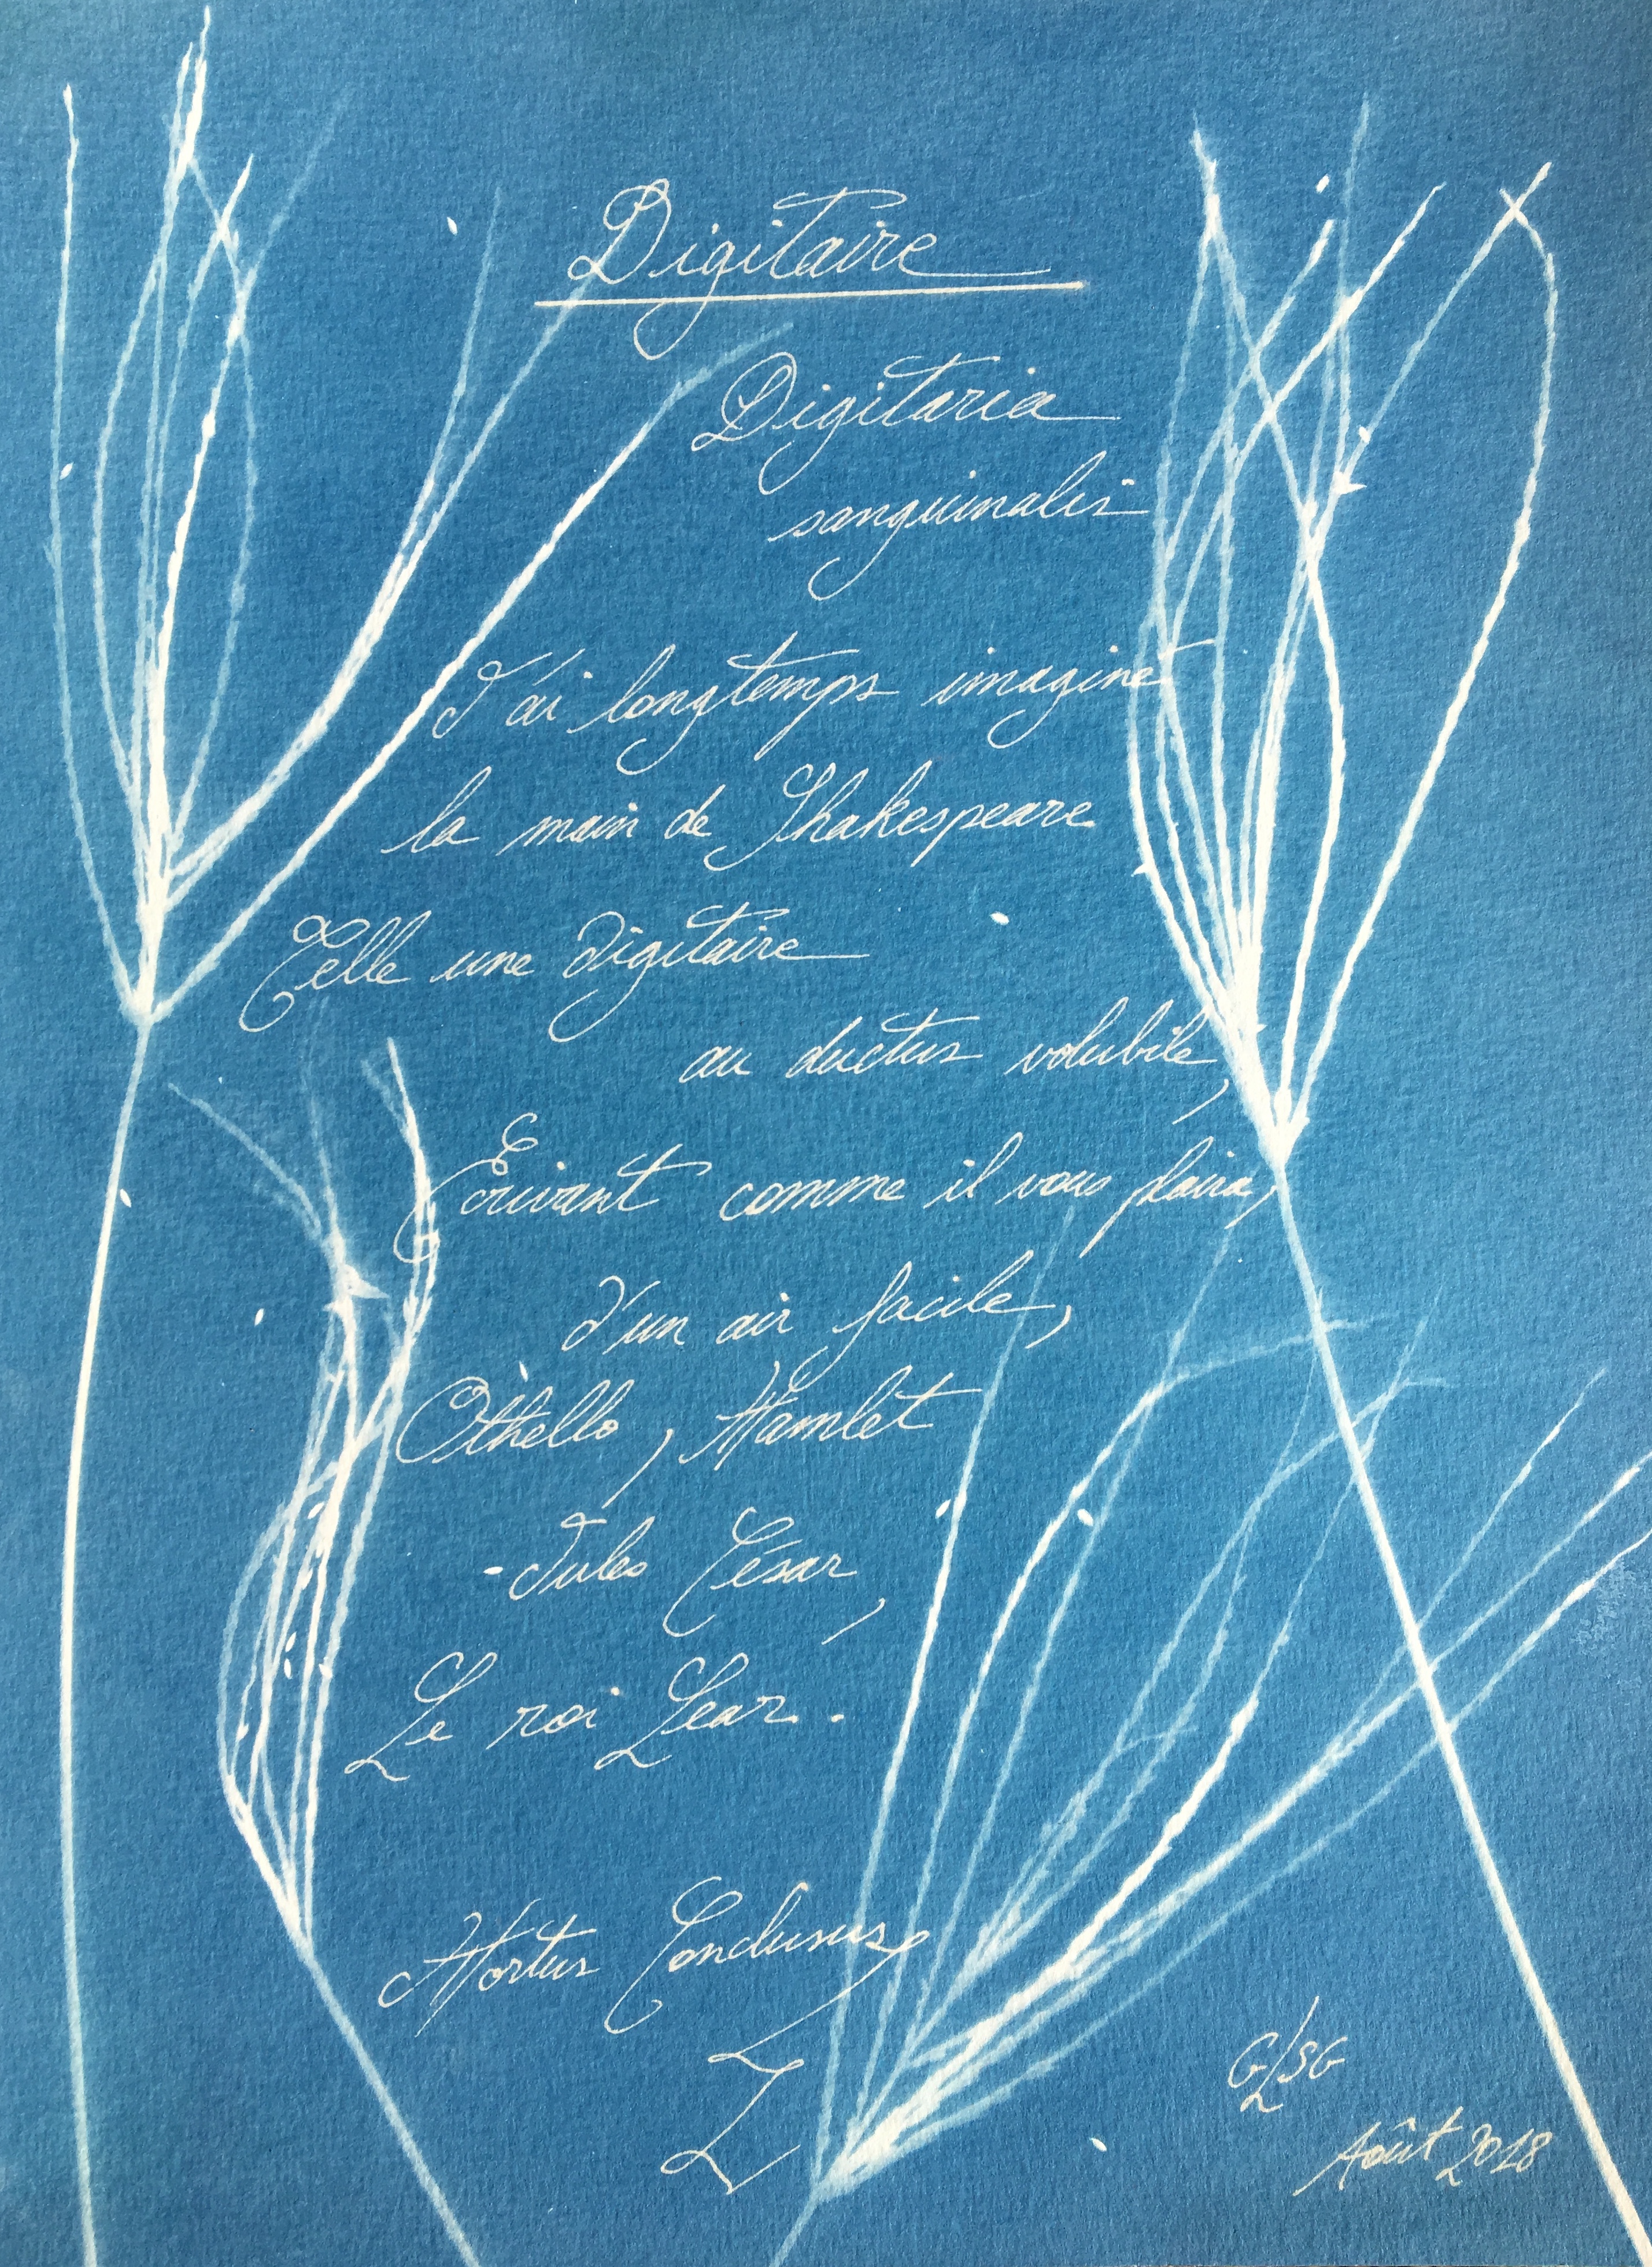 Digitaire
Digitaria
sanguinalis
J'ai longtemps imaginé
la main de Shakespeare
Telle une digitaire
au ductus volubile,
Ecrivant comme il vous plaira,
d'un air facile,
Othello, Hamlet
-Jules César,
Le roi Lear.
Hortus Conclusus,
I
GLSG
Août 2018